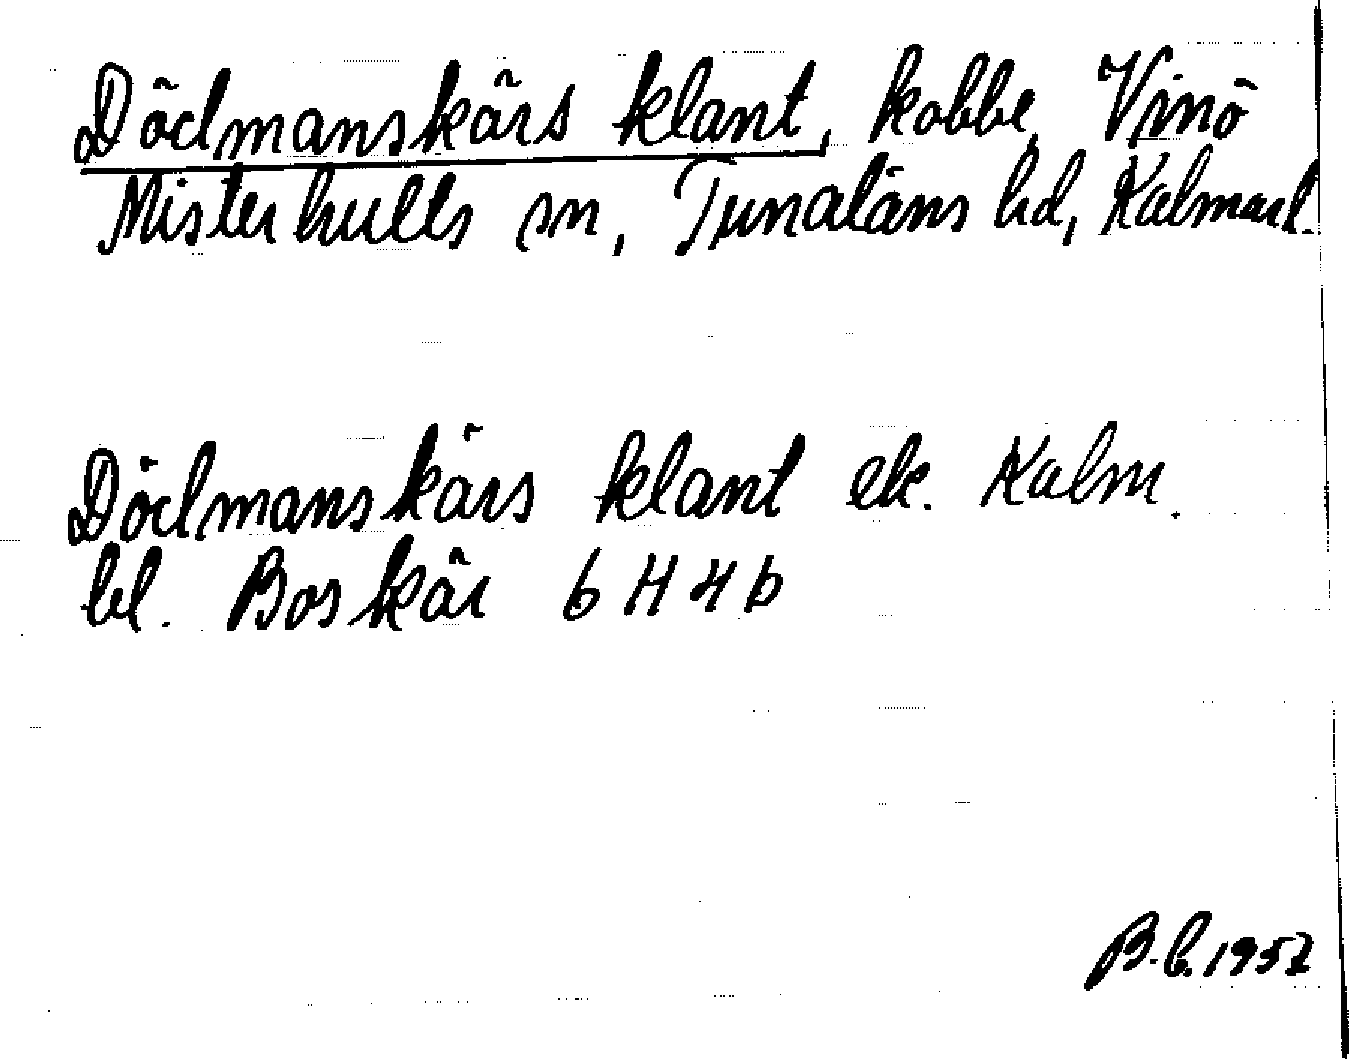 Dödmanskärs klant, kobbe, Vinö
Misterhults sn, Tunaläns hd, Kalmarl.
Dödmanskärs klant ek. Kalm.
bl. Boskär 6 H 4 b
B.C. 1957